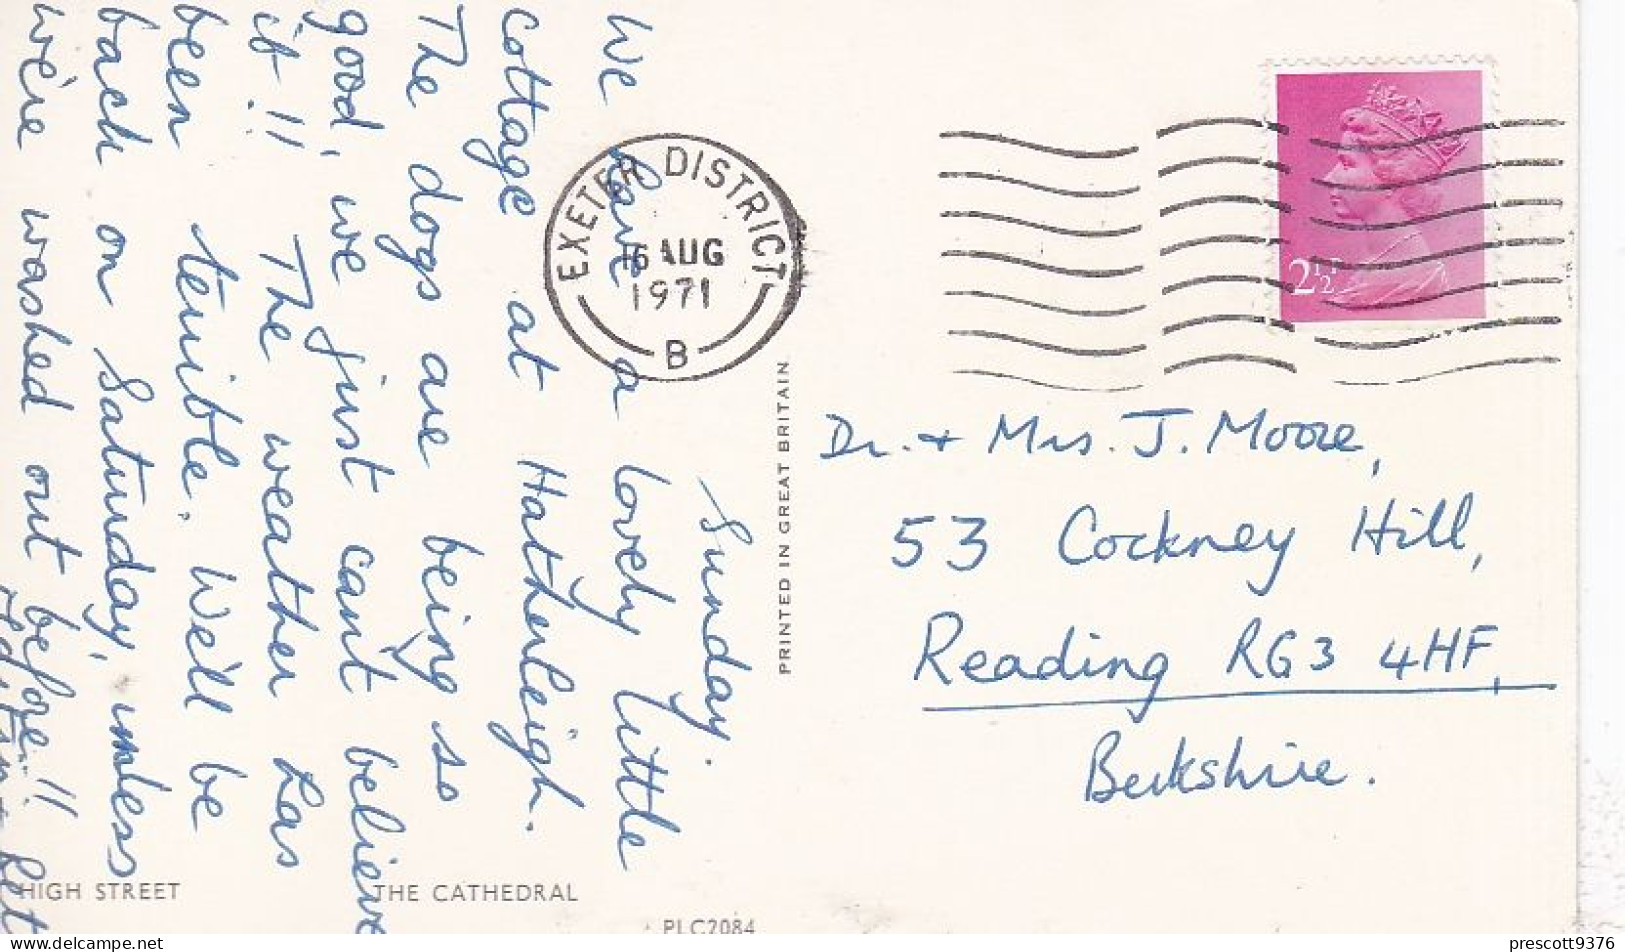 Sunday.
We have a lovely little
cottage at Hatherleigh.
The dogs are being so
good, we just can't believe
it!! The weather has
been terrible. We'll be
back on Saturday, unless
we're washed out before!!
EXETER DISTRICT
16 AUG
1971
B
2½P
PRINTED IN GREAT BRITAIN
Dr. + Mrs. J. Moore,
53 Cockney Hill,
Reading RG3 4HF,
Berkshire.
HIGH STREET
THE CATHEDRAL
PLC2084
www.delcampe.net
prescott9376